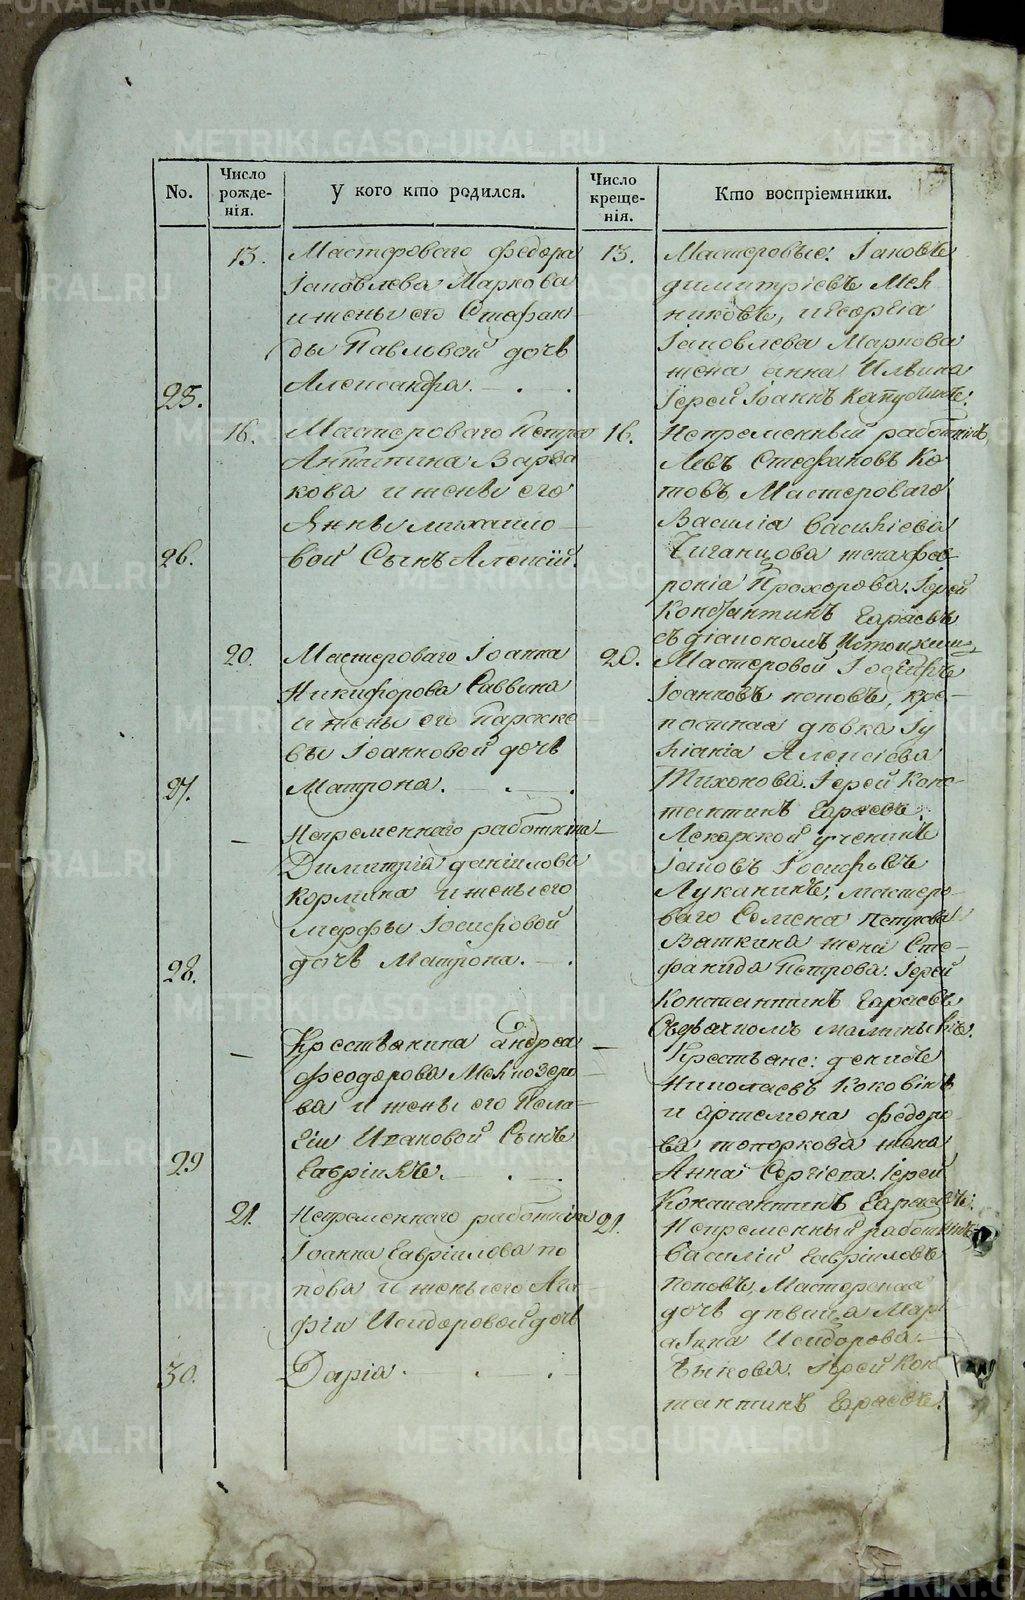 No.
Число рожде-нія.
У кого кто родился.
Число креще-нія.
Кто воспріемники.
25.
13.
Мастероваго Федора
Іаковлева Маркова
и жены его Стефани
ды Павловой дочь
Александра.
13.
Мастеровые: Іаковъ
Димитріевъ Мел
никовъ, и Георгіа
Іаковлева Маркова
жена Анна Ильина
Іерей Іоаннъ
26.
16.
Мастероваго Петра
Варва
кова и жены его
Анны Михаило
вой Сынъ Алексій.
16.
Непременный работникъ
Левъ Стефановъ Ко
товъ Мастероваго
Василіа Василіева
жена Фев
роніа Прохорова. Іерей
Константинъ
съ діакономъ
27.
20.
Мастероваго Іоанна
Никифорова Саввина
и жены его Параске
вы Іоанновой дочь
Матрона.
20.
Мастеровой Іосифъ
Іоанновъ Поповъ, кре-
постная девка Іу
ліаніа Алексіева
Тихонова. Іерей Конс-
тантинъ
28.
—
Непременнаго работника
Димитріа Даніилова
Кормина и жены его
Марфы Іосифовой
дочь Матрона.
—
Лекарской ученикъ
Іаковъ Іосифовъ
Луканинъ, мастеро-
ваго Семена Петрова
Вяткина жена Сте-
фанида Петрова. Іерей
Константинъ
29
—
Крестьянина Андреа
Феодорова Мелкозеро
ва и жены его Пела-
гіи Ивановой Сынъ
Гавріилъ.
—
Крестьяне: Денисъ
Николаевъ Коковинъ
и Артемона Федоро
ва Топоркова жена
Анна Сергіева. Іерей
Константинъ
30.
21.
Непременнаго работника
Іоанна Гавріилова По
пова и жены его Ага
фіи Исидоровой дочь
Даріа.
21.
Непременный работникъ
Василій Гавріиловъ
Поповъ, Мастерская
дочь девица Мар
Исидорова
Быкова. Іерей Конс
тантинъ
METRIKI.GASO-URAL.RU